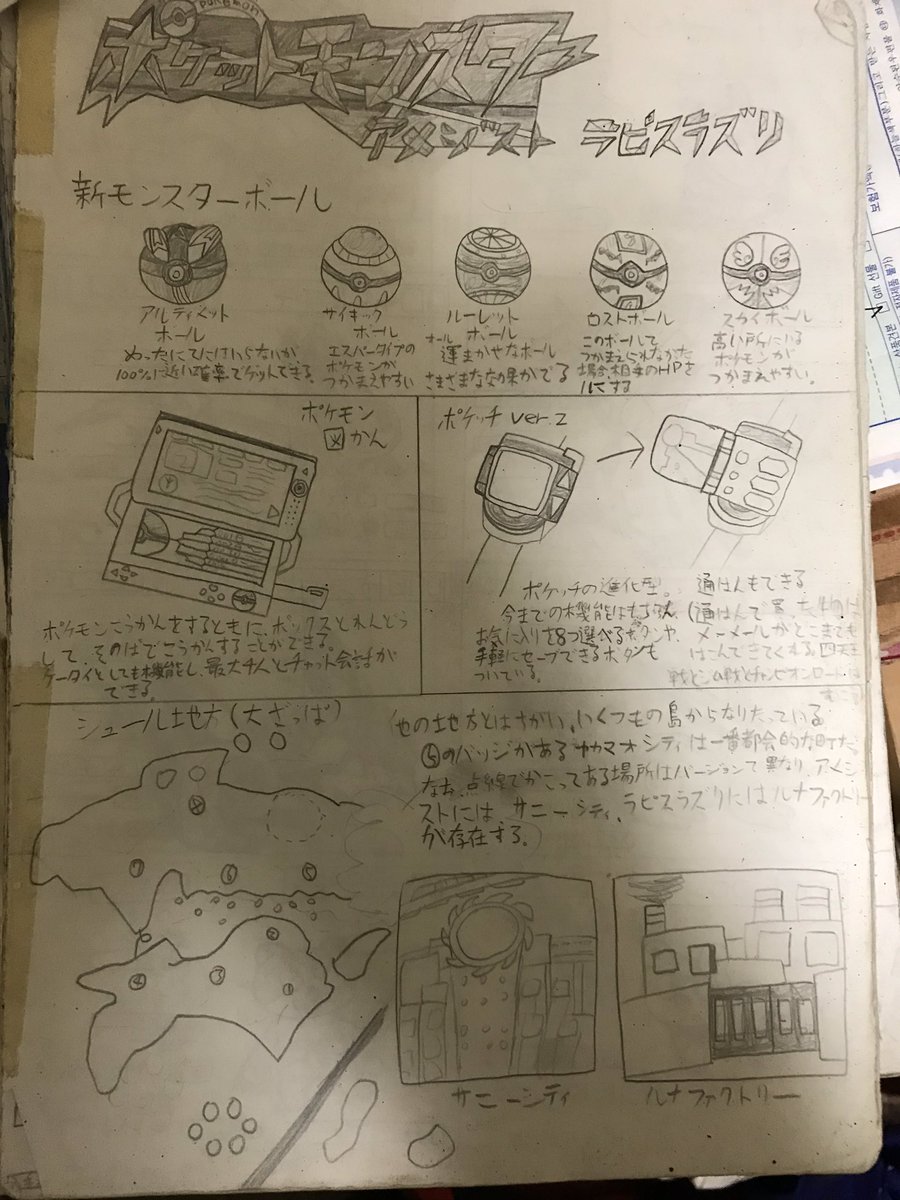 Pokémon
ポケットモンスター
アメジスト
ラピスラズリ
新モンスターボール
アルティメット
ボール
めったにてにはいらないが
100%に近い確率でゲットできる。
サイキック
ボール
エスパータイプの
ポケモンが
つかまえやすい
ルーレット
ボール
オール
運まかせなボール
さまざまな効果がでる
ロストボール
このボールで
つかまえられなかった
場合相手のHPを
1にする
スカイボール
高い所にいる
ポケモンが
つかまえやすい。
ポケモン
図かん
ポケモンこうかんをするときに、ボックスとれんどう
して、そのばでこうかんすることができる。
ケータイとしても機能し、最大4人とチャット会話が
できる。
ポケッチ ver.2
ポケッチの進化型。
今までの機能はもちろん、
お気に入りを8つ選べるボタンや、
手軽にセーブできるボタンも
ついている。
通はんもできる
(通はんで買ったものは
メーメールがどこまでも
はこんできてくれる。四天王
シュール地方(大ざっぱ)
他の地方とはちがい、いくつもの島からなりたっている
⑤のバッジがあるナカマオシティは一番都会的な町だ。
なお、点線でかこってある場所はバージョンで異なり、アメジ
ストには、サニーシティ、ラピスラズリにはルナファクトリー
が存在する。
⑧
⑦ ⑥ ⑤
②
④ ③ ①
サニーシティ
ルナファクトリー